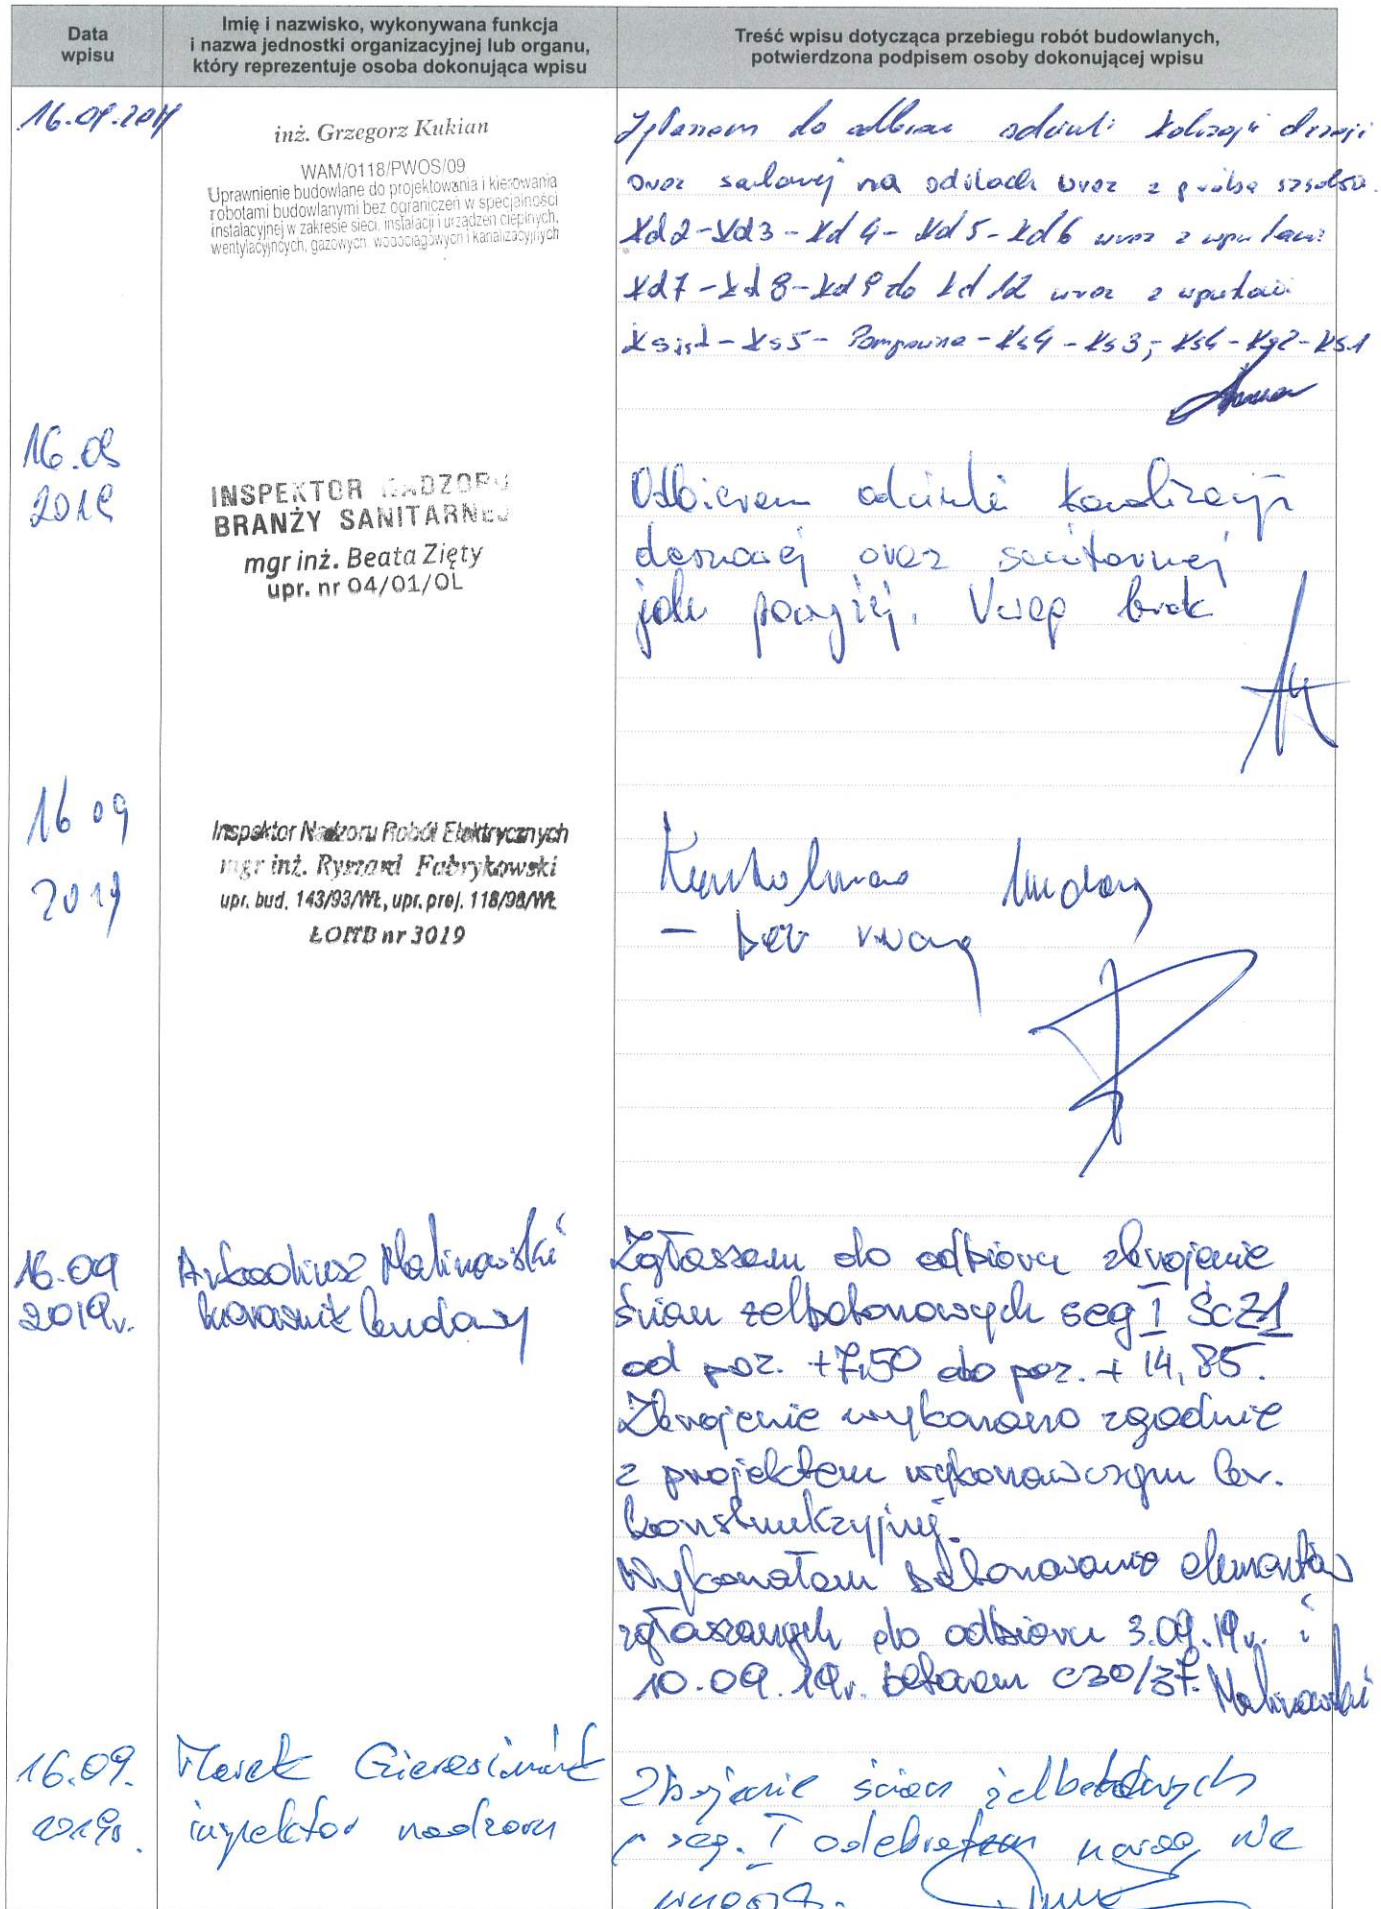 Data
wpisu
Imię i nazwisko, wykonywana funkcja
i nazwa jednostki organizacyjnej lub organu,
który reprezentuje osoba dokonująca wpisu
Treść wpisu dotycząca przebiegu robót budowlanych,
potwierdzona podpisem osoby dokonującej wpisu
16.09.2019
inż. Grzegorz Kukian
WAM/0118/PWOS/09
Uprawnienie budowlane do projektowania i kierowania
robotami budowlanymi bez ograniczeń w specjalności
instalacyjnej w zakresie sieci, instalacji i urządzeń cieplnych,
wentylacyjnych, gazowych, wodociągowych i kanalizacyjnych
do odbioru odcinki
oraz na wraz z próbą
Kd2-Kd3-Kd4-Kd5-Kd6 wraz z wpustami
Kd7-Kd8-Kd9 do Kd12 wraz z wpustami
Ksist-Ks5-Pompownia-Ks4-Ks3,
16.09
2019
INSPEKTOR NADZORU
BRANŻY SANITARNEJ
mgr inż. Beata Zięty
upr. nr 04/01/OL
Odbieram odcinki kanalizacji
deszczowej oraz sanitarnej
jak powyżej. Uwag brak
16 09
2019
Inspektor Nadzoru Robót Elektrycznych
mgr inż. Ryszard Fabrykowski
upr. bud. 143/93/WŁ, upr. proj. 118/98/WŁ
ŁOIIB nr 3019
budowy
- bez uwag
16.09
2019r.
Arkadiusz Malinowski
kierownik budowy
Zgłaszam do odbioru zbrojenie
ścian żelbetonowych seg I ŚcZ1
od poz. +7,50 do poz. + 14,85.
Zbrojenie wykonano zgodnie
z projektem wykonawczym br.
konstrukcyjnej.
Wykonałem betonowanie elementów
zgłaszanych do odbioru 3.09.19r. i
10.09.19r. betonem C30/37. Malinowski
16.09.
2019r.
Marek
inspektor nadzoru
Zbrojenie ścian żelbetowych
seg. I odebrałem uwag nie
wnoszę.